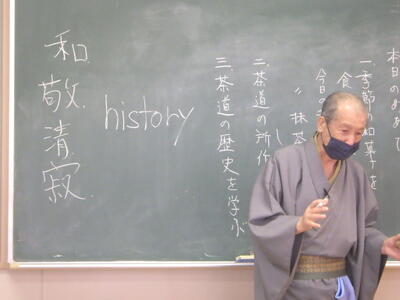 本日のめあて
一.季節の和菓子を
食
今日の
〃 抹茶
二.茶道の所作
三.茶道の歴史を学ぶ
history
和.敬.清.寂.